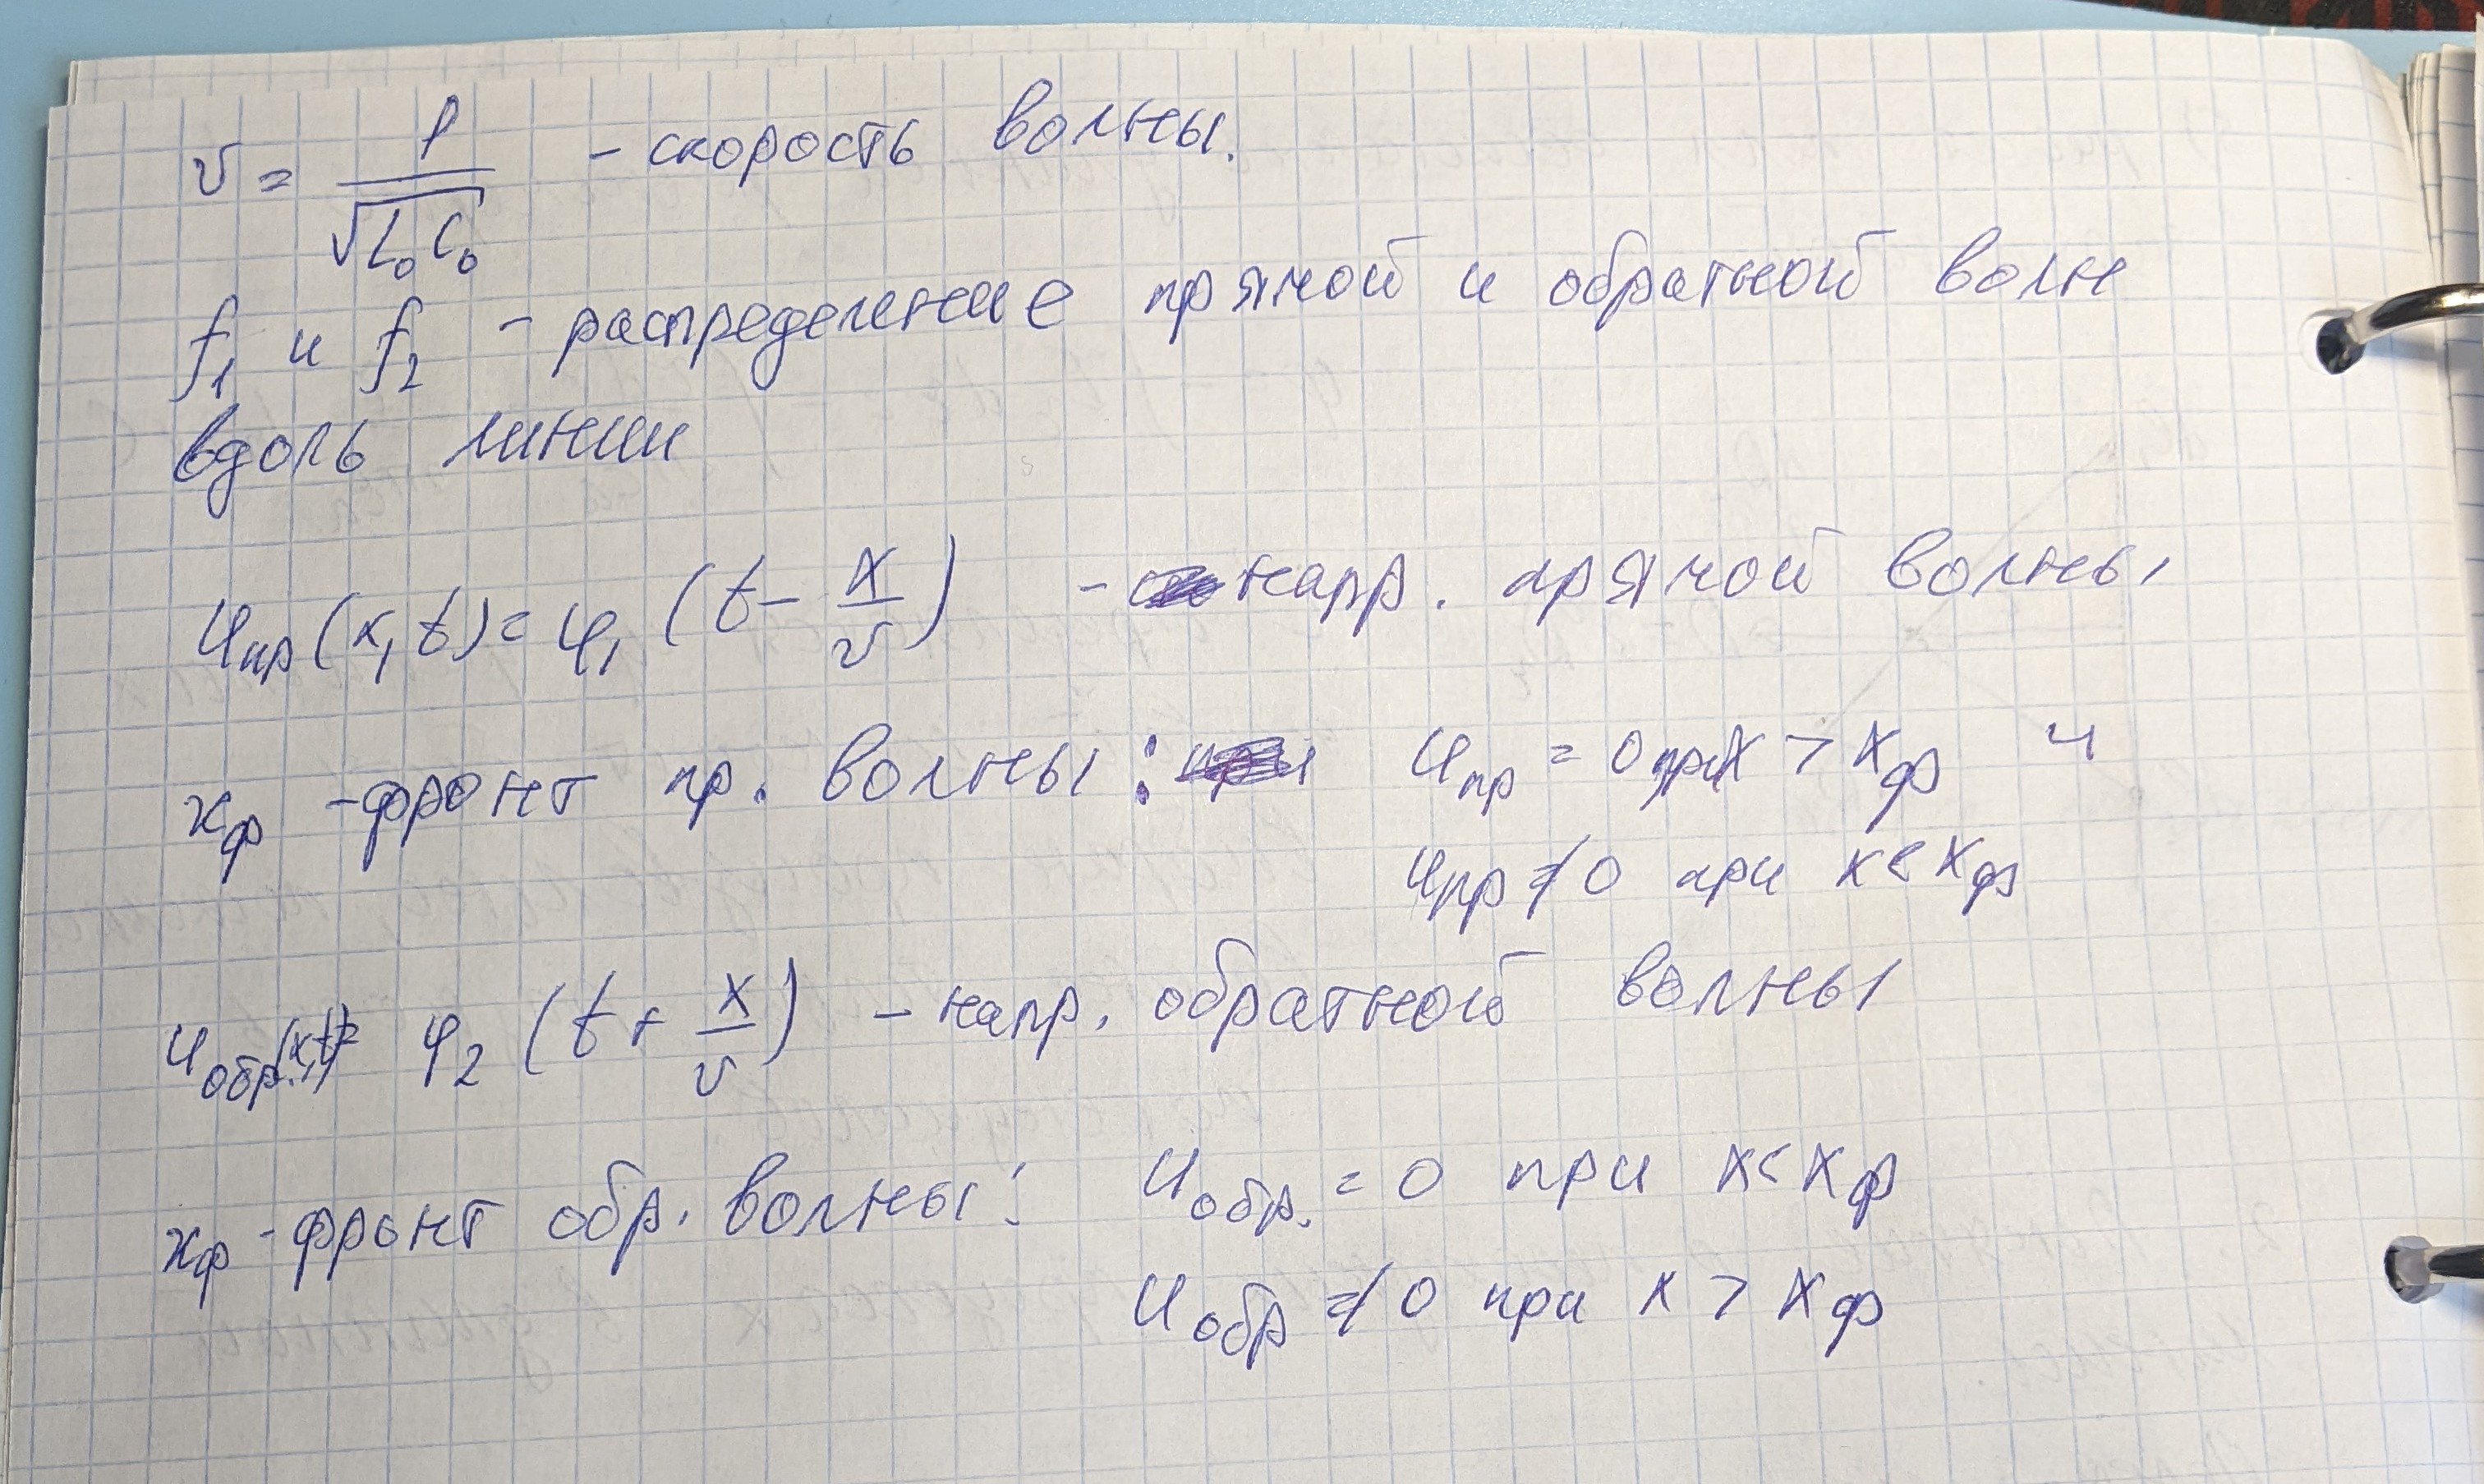 v = 1/√(L₀C₀) – скорость волны.
f₁ и f₂ – распределение прямой и обратной волн
вдоль линии
u_пр(x, t) = φ₁(t – x/v) – напр. прямой волны
x_ф – фронт пр. волны: u_пр = 0 при x > x_ф и
u_пр ≠ 0 при x < x_ф
u_обр.(x,t) = φ₂(t + x/v) – напр. обратной волны
x_ф – фронт обр. волны: u_обр. = 0 при x < x_ф
u_обр ≠ 0 при x > x_ф